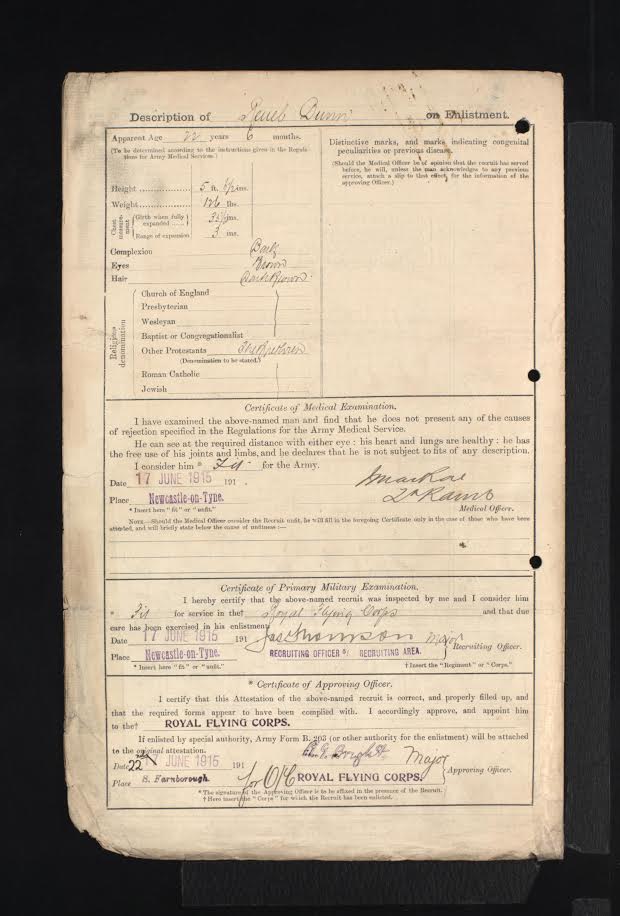 Description of Dunn on Enlistment.
Apparent Age 22 years 6 months.
(To be determined according to the instructions given in the Regulations for Army Medical Services.)
Height 5 ft. ins.
Weight 126 lbs.
Chest measurement
Girth when fully expanded ins.
Range of expansion 3 ins.
Complexion Dark
Eyes Brown
Hair Dark Brown
Religious denomination
Church of England
Presbyterian
Wesleyan
Baptist or Congregationalist
Other Protestants
(Denomination to be stated.)
Roman Catholic
Jewish
Distinctive marks, and marks indicating congenital
peculiarities or previous disease.
(Should the Medical Officer be of opinion that the recruit has served
before, he will, unless the man acknowledges to any previous
service, attach a slip to that effect, for the information of the
approving Officer.)
Certificate of Medical Examination.
I have examined the above-named man and find that he does not present any of the causes
of rejection specified in the Regulations for the Army Medical Service.
He can see at the required distance with either eye : his heart and lungs are healthy : he has
the free use of his joints and limbs, and he declares that he is not subject to fits of any description.
I consider him * Fit for the Army.
Date 17 JUNE 1915 191 .
Place Newcastle-on-Tyne.
* Insert here "fit" or "unfit."
Medical Officer.
NOTE.—Should the Medical Officer consider the Recruit unfit, he will fill in the foregoing Certificate only in the case of those who have been
attested, and will briefly state below the cause of unfitness :—
Certificate of Primary Military Examination.
I hereby certify that the above-named recruit was inspected by me and I consider him
* Fit for service in the† Royal Flying Corps and that due
care has been exercised in his enlistment.
Date 17 JUNE 1915 191 Thomson Major
Recruiting Officer.
Place Newcastle-on-Tyne. RECRUITING OFFICER RECRUITING AREA.
* Insert here "fit" or "unfit." † Insert the "Regiment" or "Corps."
* Certificate of Approving Officer.
I certify that this Attestation of the above-named recruit is correct, and properly filled up, and
that the required forms appear to have been complied with. I accordingly approve, and appoint him
to the† ROYAL FLYING CORPS.
If enlisted by special authority, Army Form B. 203 (or other authority for the enlistment) will be attached
to the original attestation.
Date 22 17 JUNE 1915 191 Major
Approving Officer.
Place S. Farnborough. for O/C ROYAL FLYING CORPS.
* The signature of the Approving Officer is to be affixed in the presence of the Recruit.
† Here insert the "Corps" for which the Recruit has been enlisted.